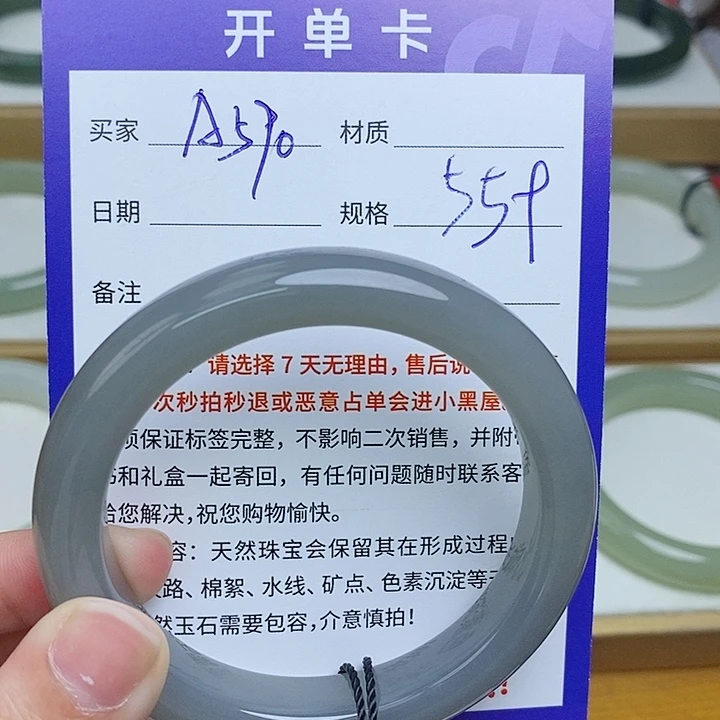 开单卡
买家 A590 材质
日期 规格 559
备注
请选择7天无理由,售后说
次秒拍秒退或恶意占单会进小黑屋
须保证标签完整,不影响二次销售,并附
书和礼盒一起寄回,有任何问题随时联系客
给您解决,祝您购物愉快。
容:天然珠宝会保留其在形成过程
纹路、棉絮、水线、矿点、色素沉淀等
然玉石需要包容,介意慎拍!